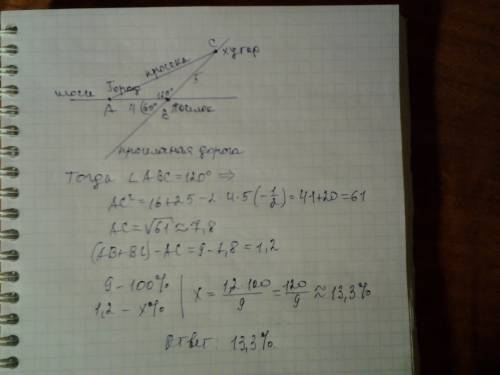 C
хутор
просека
5
шоссе
Город
120°
A
4
60°
B
Поселок
проселочная дорога
Тогда ∠ABC=120° ⇒
AC²=16+25-2·4·5(-1/2)=41+20=61
AC=√61≈7,8
(AB+BC)-AC=9-7,8=1,2
9-100%
1,2-x%
x=1,2·100/9=120/9≈13,3%
Ответ: 13,3%.